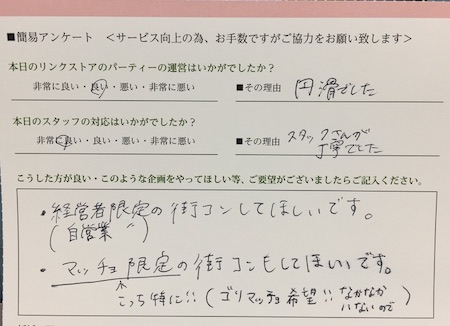 ■簡易アンケート　＜サービス向上の為、お手数ですがご協力をお願い致します＞
本日のリンクストアのパーティーの運営はいかがでしたか？
非常に良い・良い・悪い・非常に悪い　■その理由　円滑でした
本日のスタッフの対応はいかがでしたか？
非常に良い・良い・悪い・非常に悪い　■その理由　スタッフさんが
丁寧でした
こうした方が良い・このような企画をやってほしい等、ご要望がございましたらご記入ください。
・経営者限定の街コンしてほしいです。
(自営業 〃)
・マッチョ限定の街コンもしてほしいです。
こっち特に!!(ゴリマッチョ希望!!なかなか
いないので)